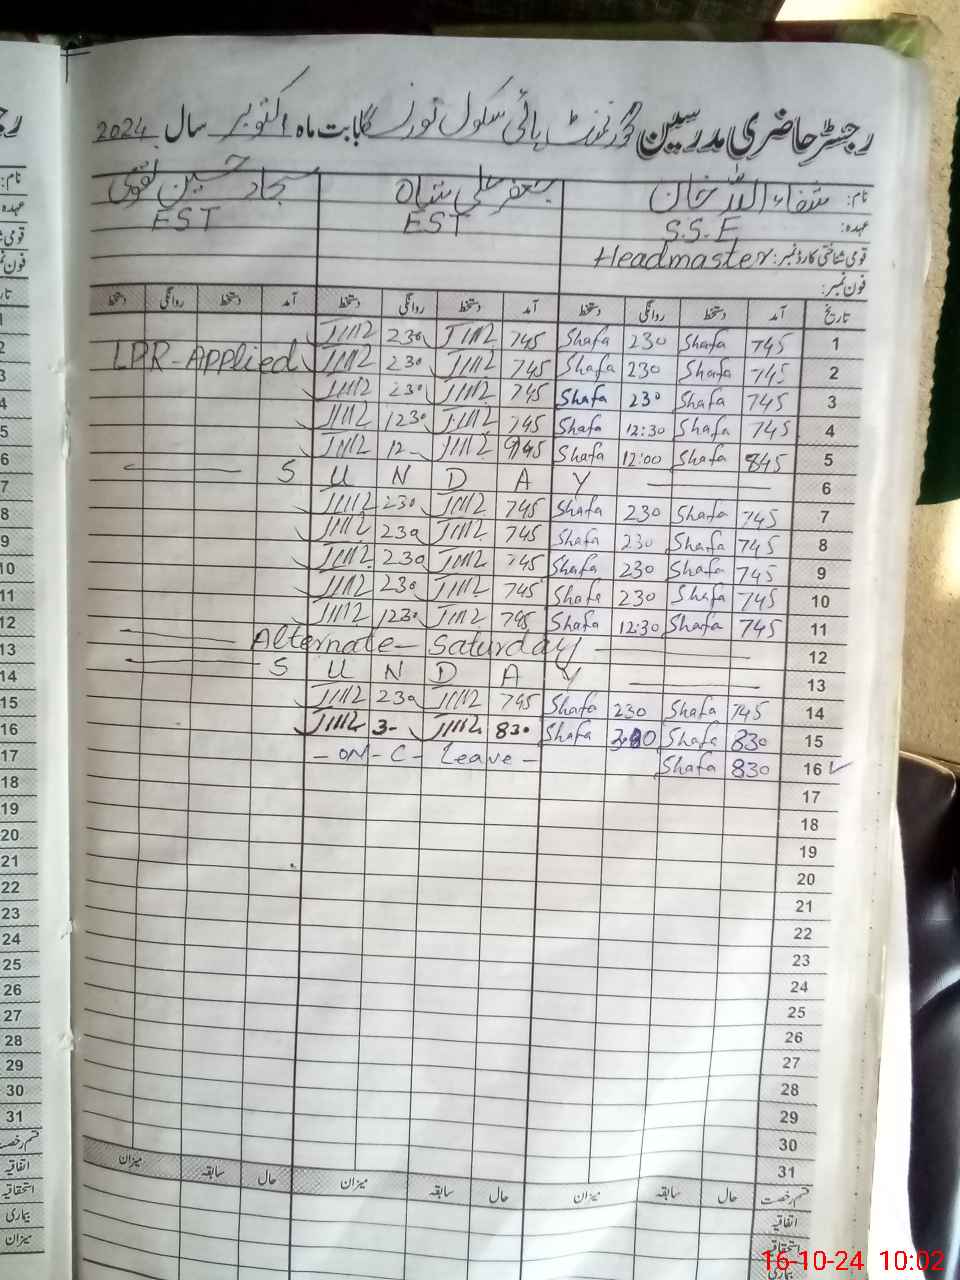 رجسٹر حاضری مدرسین گورنمنٹ ہائی سکول نورنگا بابت ماہ اکتوبر سال 2024
نام: شفاء اللہ خان جعفر علی شاہ سجاد حسین نقوی
عہدہ: S.S.E EST EST
قومی شناختی کارڈ نمبر: Headmaster
فون نمبر:
تاریخ آمد دستخط روانگی دستخط آمد دستخط روانگی دستخط آمد دستخط روانگی دستخط
1 745 Shafa 230 Shafa 745 230
2 745 Shafa 230 Shafa 745 230 LPR-Applied
3 745 Shafa 230 Shafa 745 230
4 745 Shafa 12:30 Shafa 745 1230
5 845 Shafa 12:00 Shafa 12
6 SUNDAY
7 745 Shafa 230 Shafa 745 230
8 745 Shafa 230 Shafa 745 230
9 745 Shafa 230 Shafa 745 230
10 745 Shafa 230 Shafa 745 230
11 745 Shafa 12:30 Shafa 745 1230
12 Alternate - Saturday
13 SUNDAY
14 745 Shafa 230 Shafa 745 230
15 830 Shafa Shafa 830 3-
16 830 Shafa - ON - C - Leave -
17
18
19
20
21
22
23
24
25
26
27
28
29
30
31
قسم رخصت حال سابقہ میزان حال سابقہ میزان حال سابقہ میزان
اتفاقیہ
استحقاقیہ
بیماری
نام:
عہدہ
2
3
4
5
6
7
8
9
10
11
12
13
14
15
16
17
18
19
20
21
22
23
24
25
26
27
28
29
30
31
قسم رخصت
اتفاقیہ
استحقاقیہ
بیماری
میزان
16-10-24 10:02